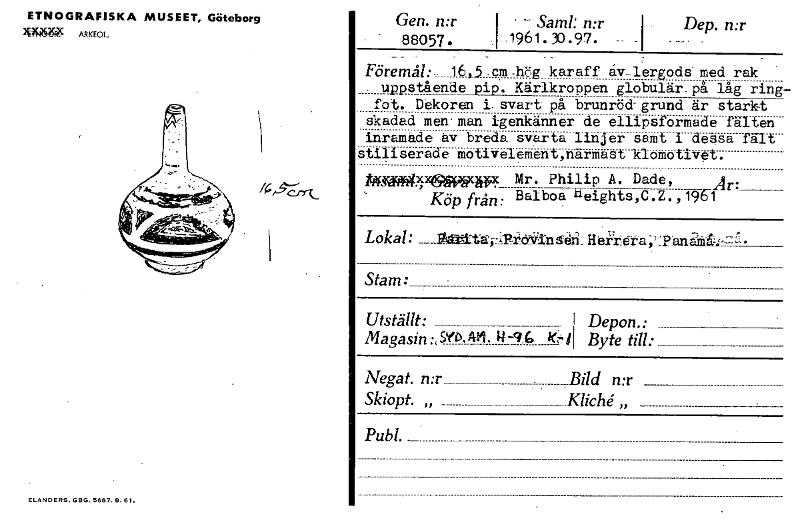 ETNOGRAFISKA MUSEET, Göteborg
ARKEOL.
16,5 cm
ELANDERS. GBG. 5667. 8. 61.
Gen. n:r Saml. n:r Dep. n:r
88057. 1961.30.97.
Föremål: 16,5 cm hög karaff av lergods med rak
uppstående pip. Kärlkroppen globulär på låg ring-
fot. Dekoren i svart på brunröd grund är starkt
skadad men man igenkänner de ellipsformade fälten
inramade av breda svarta linjer samt i dessa fält
stiliserade motivelement,närmast klomotivet.
Insaml., Gåva av: Mr. Philip A. Dade, År:
Köp från: Balboa Heights,C.Z.,1961
Lokal: Parita, Provinsen Herrera, Panamá.
Stam:
Utställt: Depon.:
Magasin: SYD.AM. H-96 K-1 Byte till:
Negat. n:r Bild n:r
Skiopt. „ Kliché „
Publ.